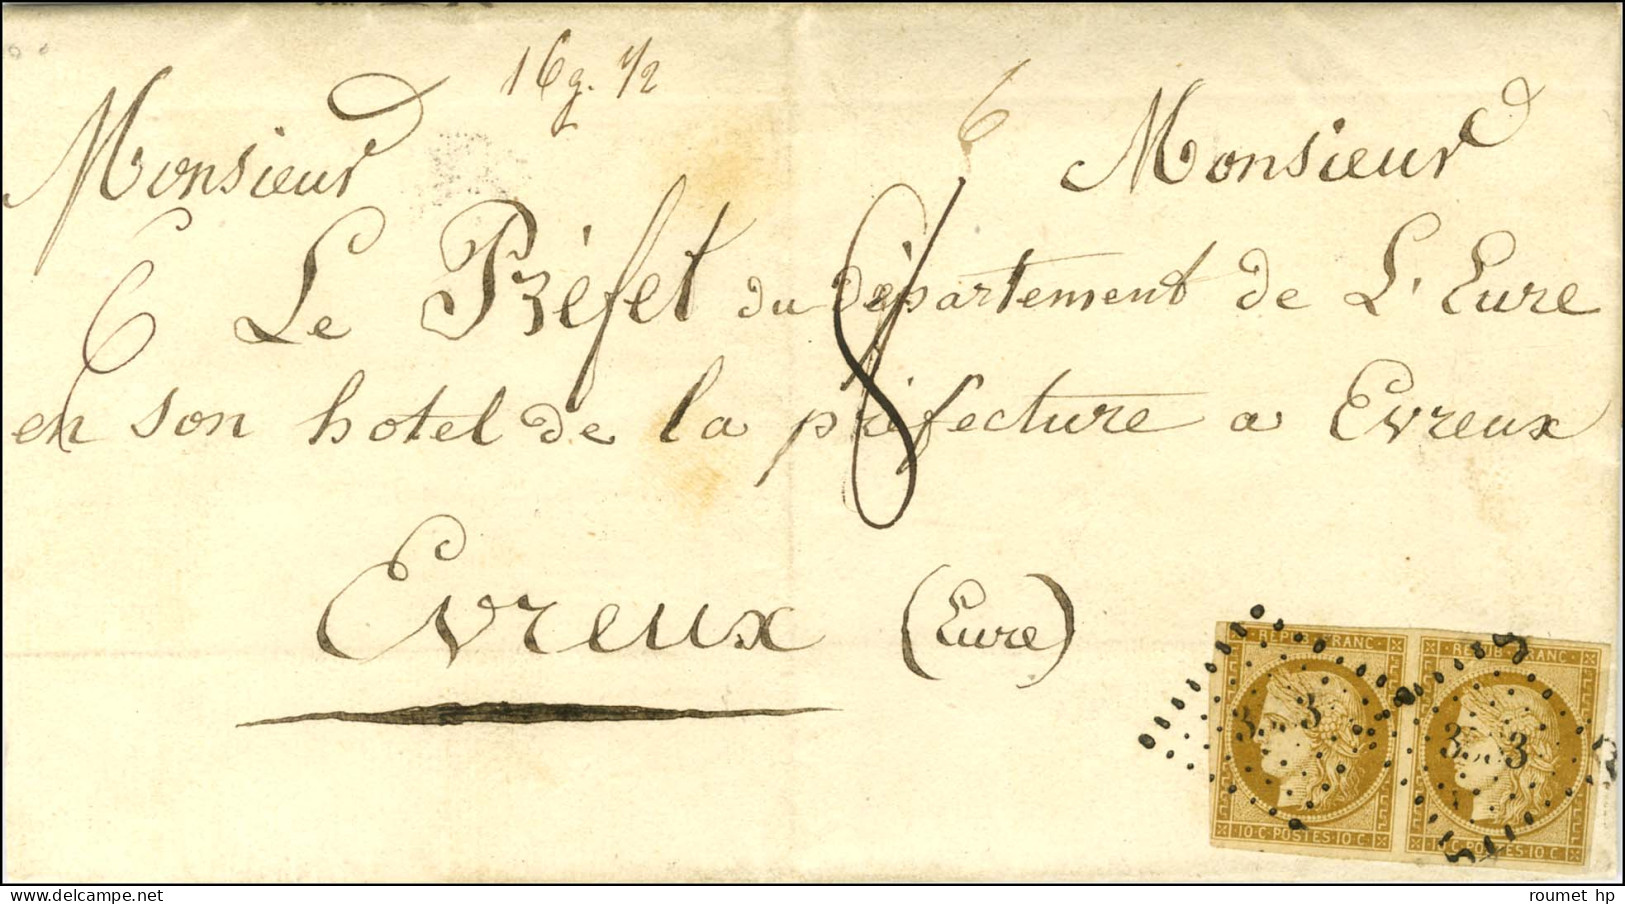 16 g. 1/2
6
Monsieur Monsieur
6 Le Préfet du département de L'Eure
8
en son hotel de la préfecture a Evreux
Evreux (Eure)
REPUB. FRANC. REPUB. FRANC.
3 3 3 3
10 C. POSTES 10 C. 10 C. POSTES 10 C.
roumet hp